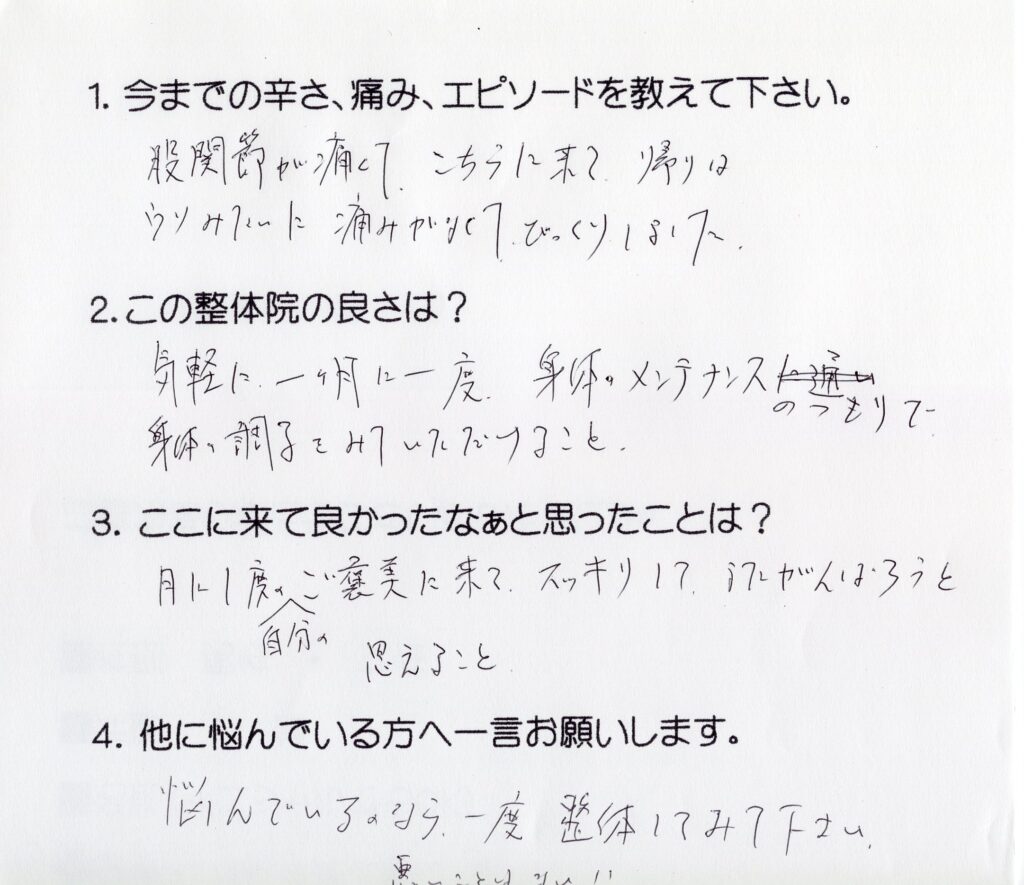 1. 今までの辛さ、痛み、エピソードを教えて下さい。
股関節が痛くて、こちらに来て、帰りは
ウソみたいに痛みがなくて、びっくりしました。
2. この整体院の良さは？
気軽に、一ヶ月に一度、身体のメンテナンスに通い
のつもりで
身体の調子をみていただけること。
3. ここに来て良かったなぁと思ったことは？
月に1度の ご褒美に来て、スッキリして、またがんばろうと
自分の
思えること。
4. 他に悩んでいる方へ一言お願いします。
悩んでいるのなら、一度 整体してみて下さい。